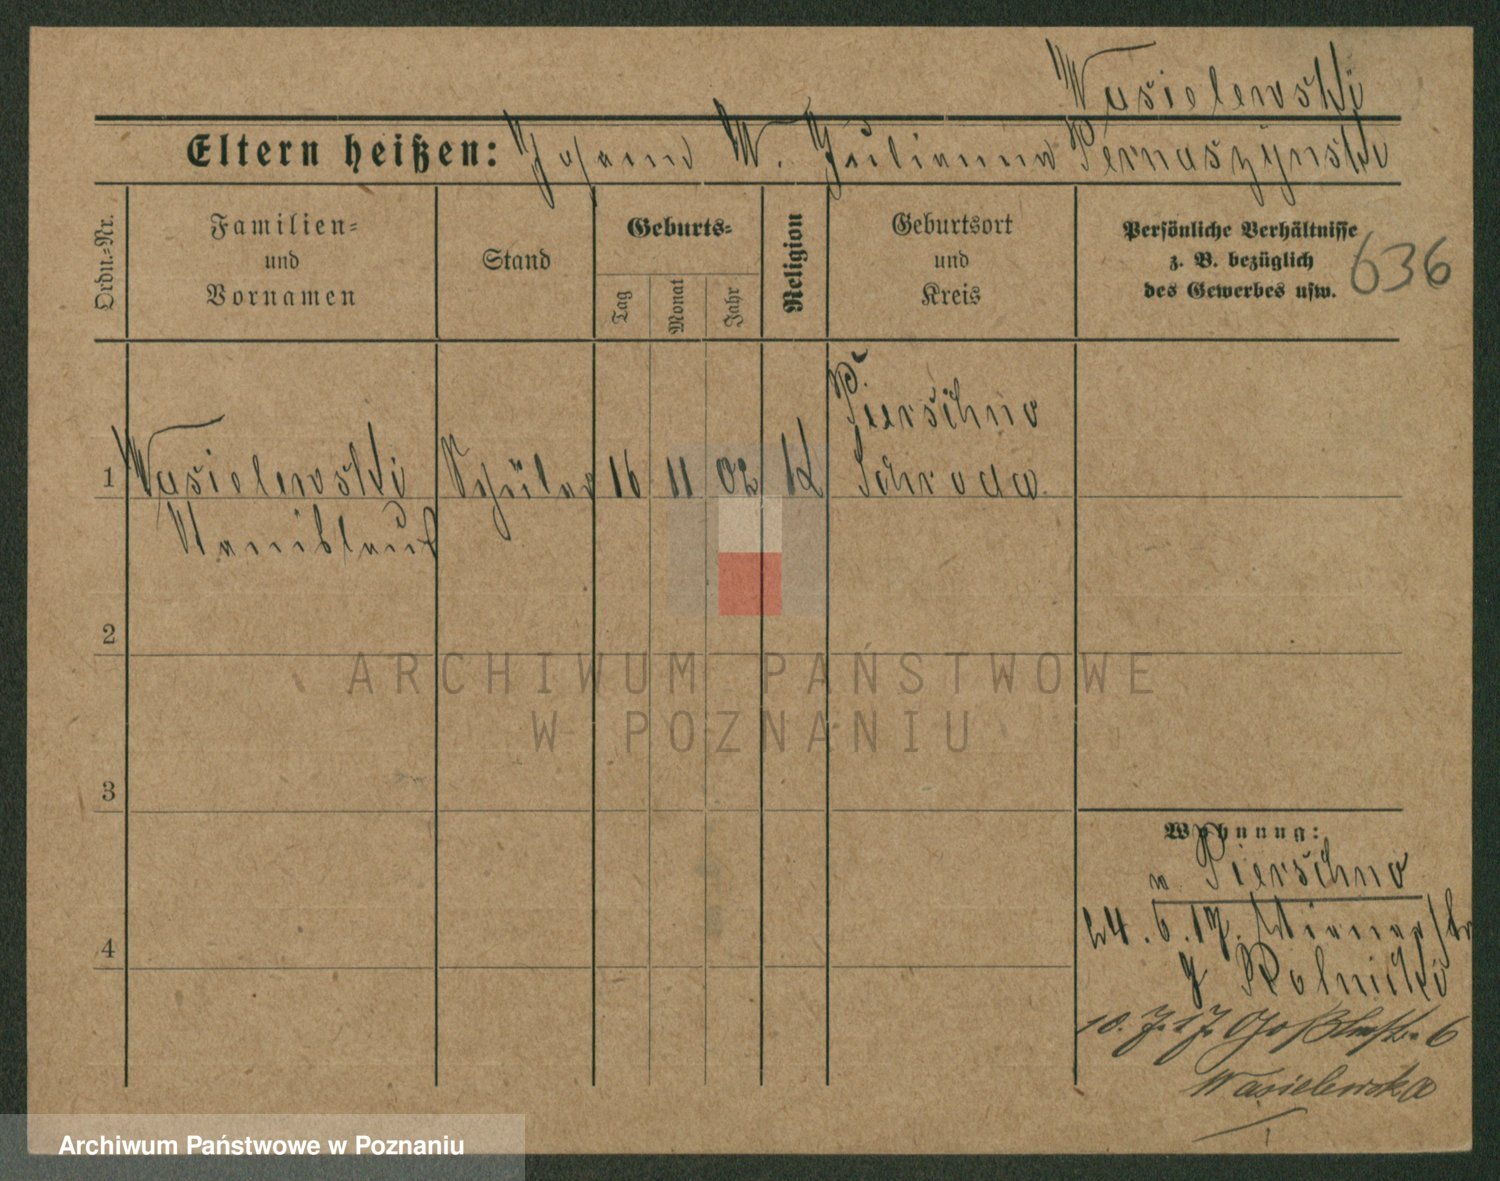 Wasielewski
Eltern heißen: Johann W. Julianna Pernaszynska
Ordn.-Nr.
Familien-
und
Vornamen
Stand
Geburts-
Tag
Monat
Jahr
Religion
Geburtsort
und
Kreis
Persönliche Verhältnisse
z. B. bezüglich
des Gewerbes usw.
636
Pierschno
1 Wasielewski Schüler 16 11 02 K Schroda
Stanislaus
2
ARCHIWUM PAŃSTWOWE
W POZNANIU
3
Wohnung:
n. Pierschno
4
24.6.17.
Rolnicki
10.7.17. 6
Wasielewska
Archiwum Państwowe w Poznaniu